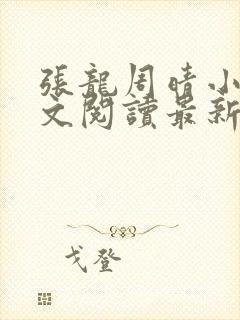 張龍周晴小
文閱讀最新
戈登